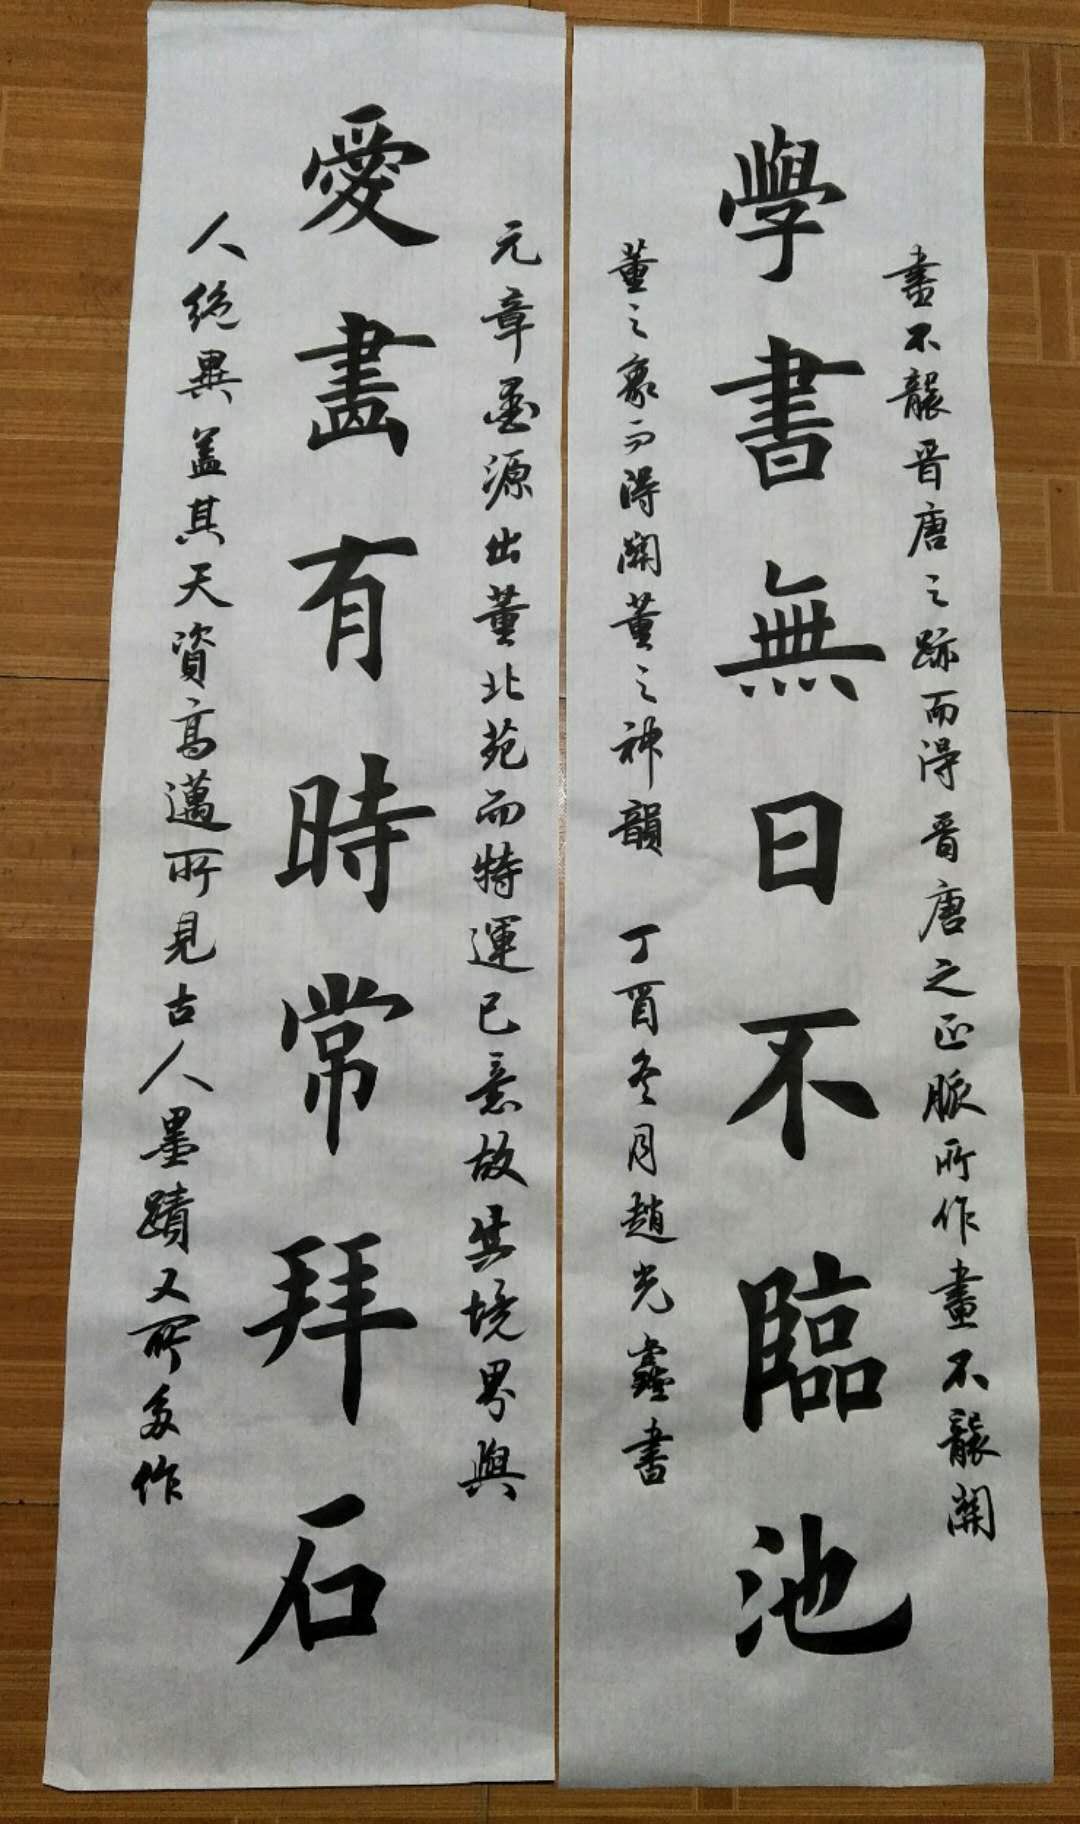 書不襲晋唐之跡而得晋唐之正脈所作畫不襲關
學書無日不臨池
董之象而得關董之神韻 丁酉冬月趙光書
愛畫有時常拜石
元章畫源出董北苑而特運己意故其境界與
人絕異蓋其天資高邁所見古人墨蹟又所多作